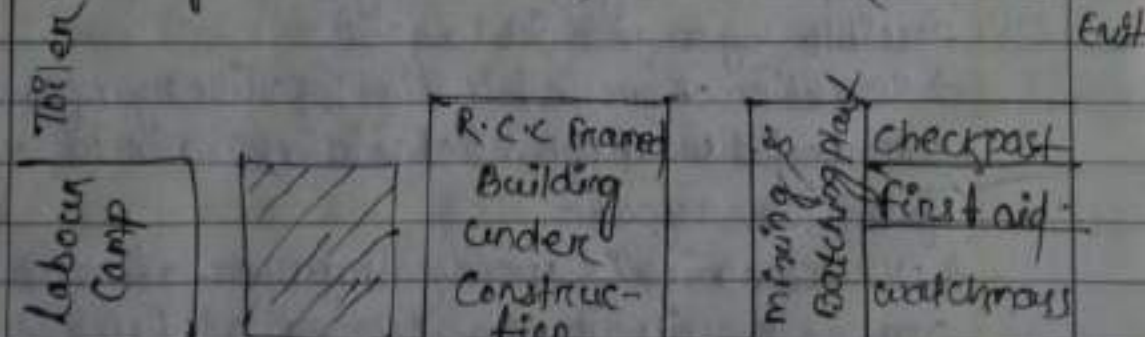 Exit
Toilen
Labour
Camp
R.C.C framed
Building
under
Construc-
tion
mixing &
Batching Plant
Checkpast
first aid
watchmans